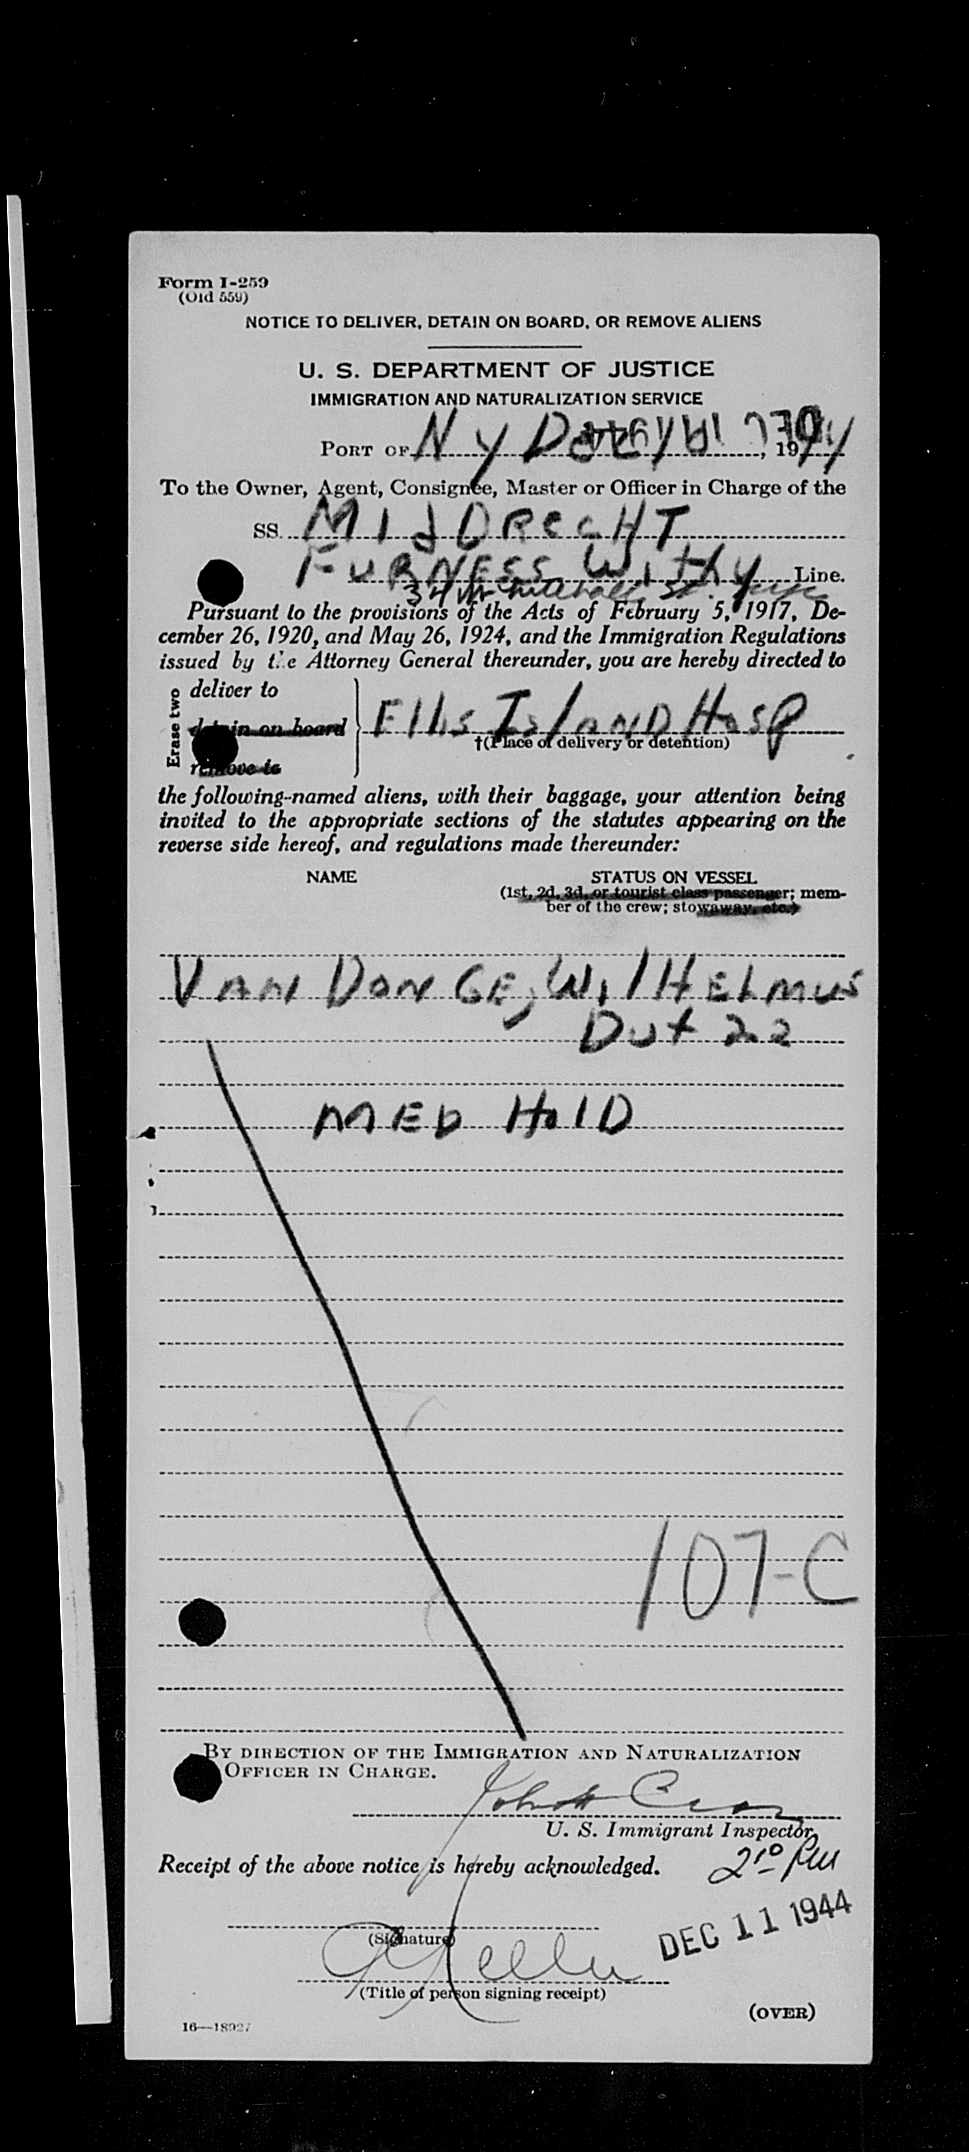 Form I-259
(Old 559)
NOTICE TO DELIVER, DETAIN ON BOARD, OR REMOVE ALIENS
U. S. DEPARTMENT OF JUSTICE
IMMIGRATION AND NATURALIZATION SERVICE
PORT OF N Y DEC , 1944
To the Owner, Agent, Consignee, Master or Officer in Charge of the
SS. MIJDRECHT
FURNESS WITHY Line.
34 Whitehall St.
Pursuant to the provisions of the Acts of February 5, 1917, De-
cember 26, 1920, and May 26, 1924, and the Immigration Regulations
issued by the Attorney General thereunder, you are hereby directed to
Erase two
deliver to
detain on board
remove to
Ellis Island Hosp
†(Place of delivery or detention)
the following-named aliens, with their baggage, your attention being
invited to the appropriate sections of the statutes appearing on the
reverse side hereof, and regulations made thereunder:
NAME STATUS ON VESSEL
(1st, 2d, 3d, or tourist class passenger; mem-
ber of the crew; stowaway, etc.)
VAN DONGE, WILHELMUS
Dut 22
MED HOLD
107-C
BY DIRECTION OF THE IMMIGRATION AND NATURALIZATION
OFFICER IN CHARGE.
U. S. Immigrant Inspector.
Receipt of the above notice is hereby acknowledged.
2 10 PM
DEC 11 1944
(Signature)
(Title of person signing receipt)
(OVER)
16—18927